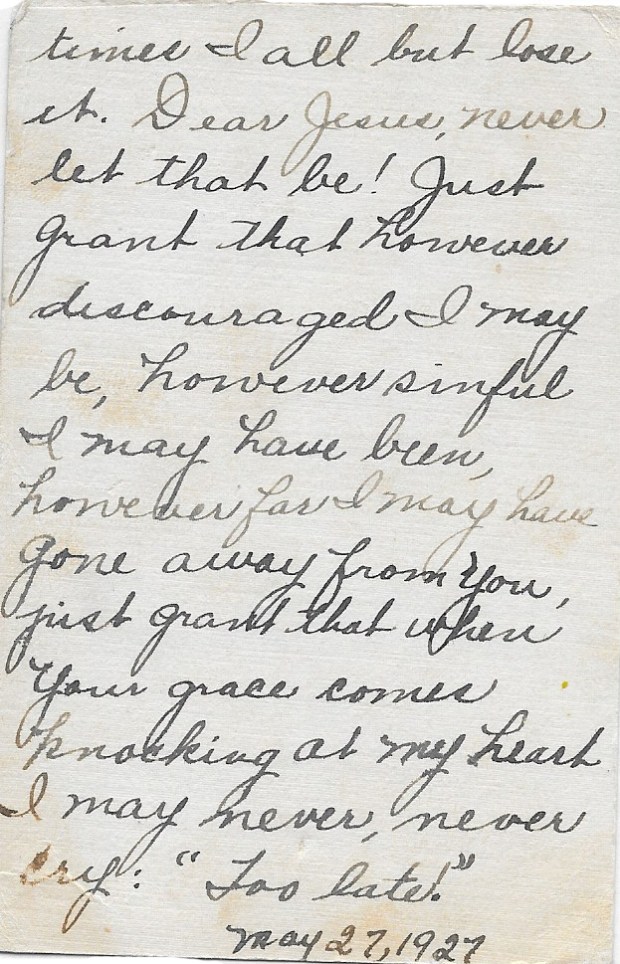 times I all but lose
it. Dear Jesus, never
let that be! Just
grant that however
discouraged I may
be, however sinful
I may have been,
however far I may have
gone away from You,
just grant that when
Your grace comes
knocking at my heart
I may never, never
cry: "Too late!"
May 27, 1927